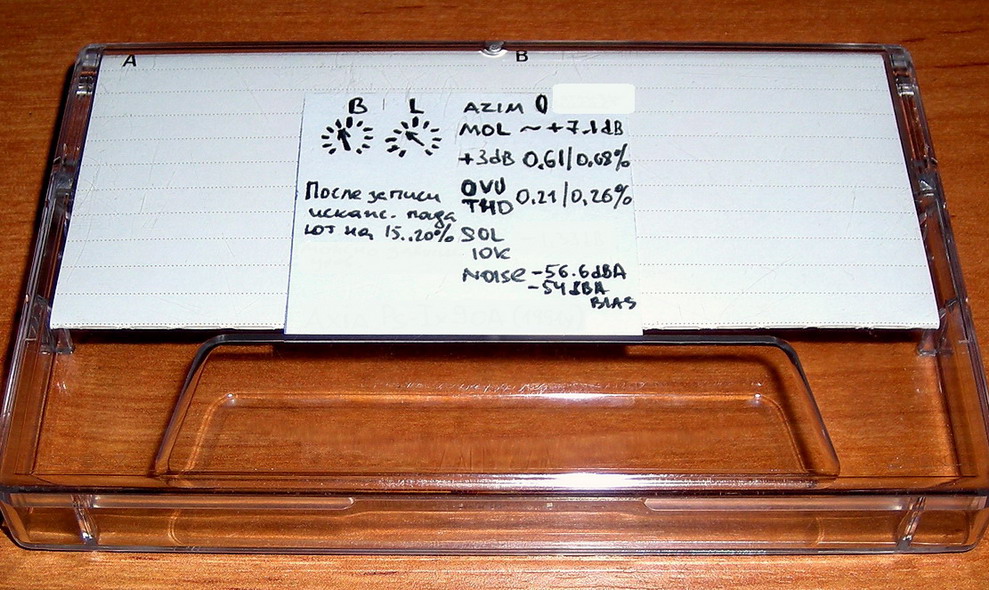 A
B
B L
После записи
искаж. пада
ют на 15..20%
AZIM 0
MOL ~ +7.1dB
+3dB 0.61/0,68%
0VU
THD 0.21/0,26%
SOL
10K
NOISE -56.6dBA
-54dBA
BIAS